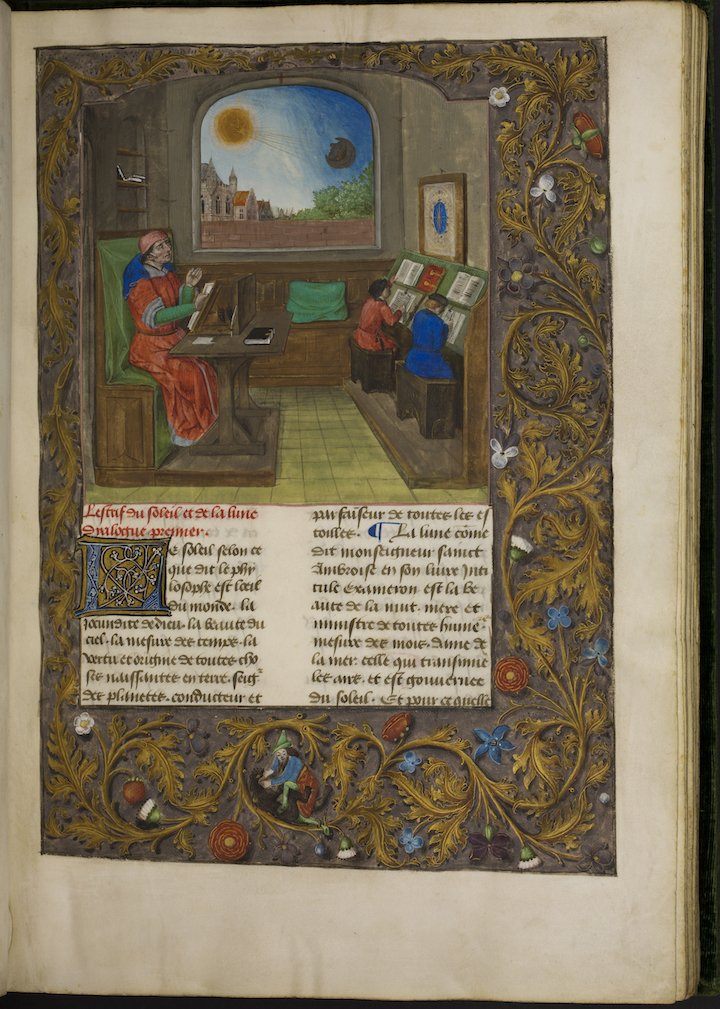 L'estrif du soleil et de la lune
dyalogue premier.
LE soleil selon ce
que dit le phy
losophe est lœil
du monde. la
jocundite de dieu. la beaute du
ciel. la mesure des temps. la
vertu et origine de toutes cho
ses naissantes en terre. seigr̄
des planetes. conducteur et
parfaiseur de toutes les es
toilles. ¶ La lune come
dit monseigneur sainct
Ambroise en son livre Inti
tule Exameron est la be
aute de la nuit. mere et
ministre de toute humeˀ.
mesure des mois. dame de
la mer. celle qui transmue
les airs. et est gouvernee
du soleil. Et pour ce quelle